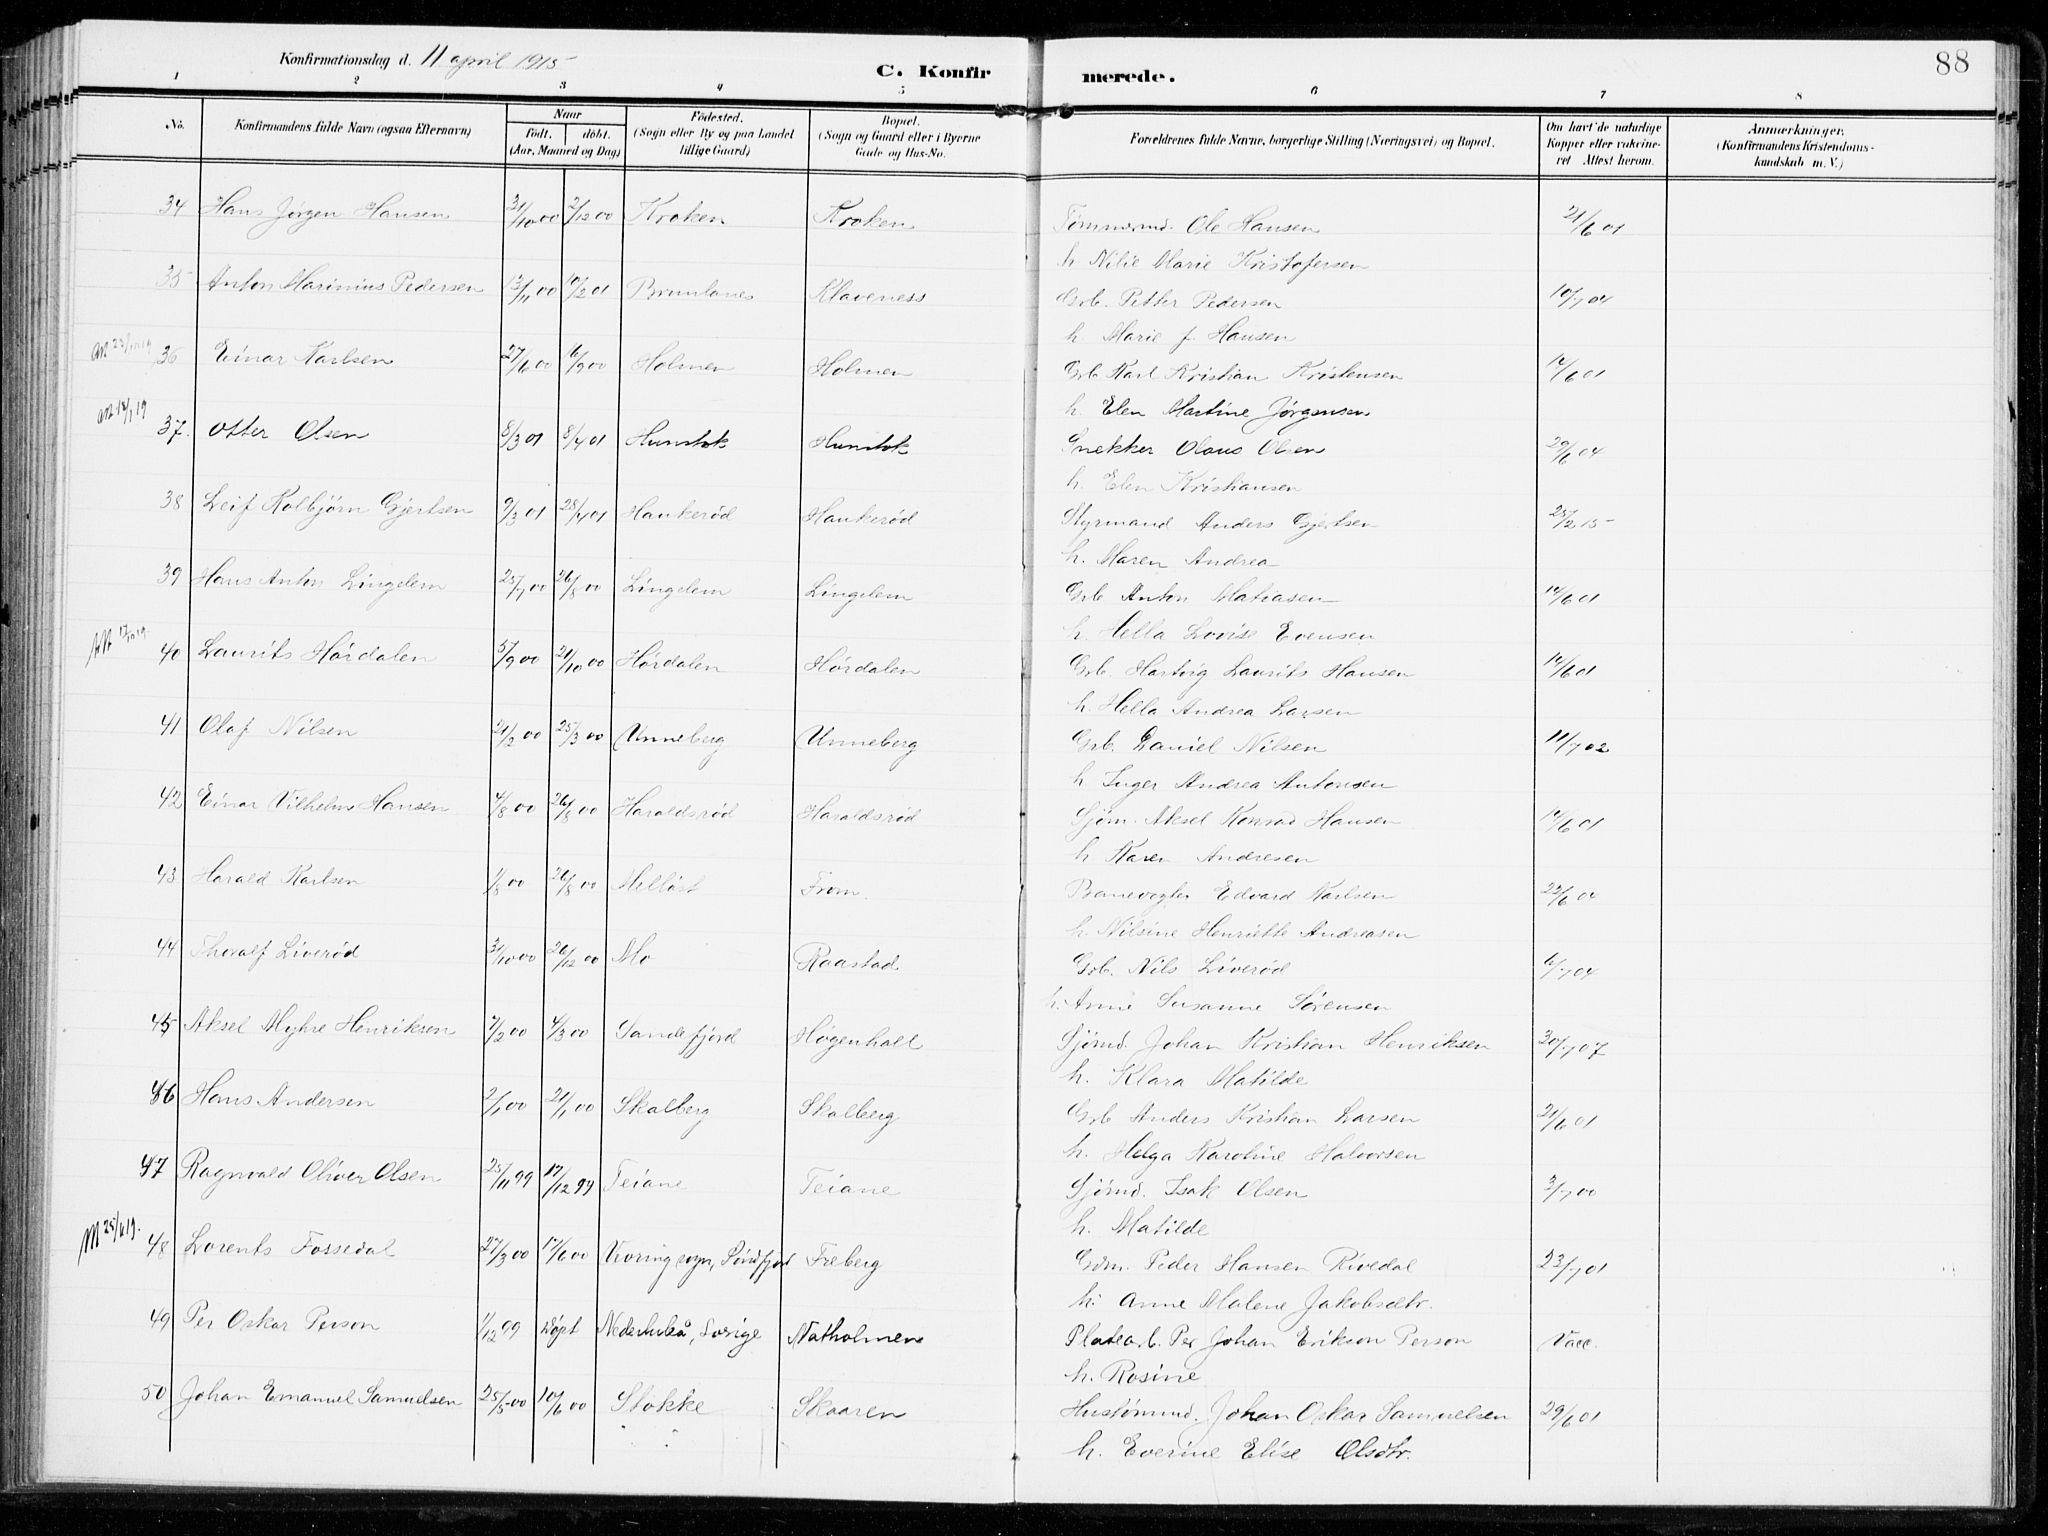 88
Konfirmationsdag d. 11 april 1915
C. Konfirmerede.
1 2 3 4 5 6 7 8
No.
Konfirmandens fulde Navn (ogsaa Efternavn)
Naar
født. døbt.
(Aar, Maaned og Dag)
Fødested.
(Sogn eller By og paa Landet
tillige Gaard)
Bopæl.
(Sogn og Gaard eller i Byerne
Gade og Hus-No.
Forældrenes fulde Navne, borgerlige Stilling (Næringsvei) og Bopæl.
Om havt de naturlige
Kopper eller vakcine-
ret Attest herom.
Anmærkninger.
(Konfirmandens Kristendoms-
kundskab m. V.)
34 Hans Jørgen Hansen 31/10 00 2/12 00 Kroken Kroken Tømmermd. Ole Hansen 21/6 01
h. Nilie Marie Kristofersen
35 Anton Marinius Pedersen 13/11 00 Brunlanes Klaveness Grb. Petter Pedersen 10/7 04
h. Marie f. Hansen
36 Einar Karlsen 27/6 00 16/9 00 Holmen Holmen Grb. Karl Kristian Kristensen 14/6 01
h. Elen Martine Jørgensen
37. Otter Olsen 8/3 01 8/4 01 Hunstok Hunstok Snekker Olaus Olsen 29/6 04
h. Elen Kristiansen
38 Leif Kolbjørn Gjertsen 9/3 01 28/4 01 Haukerød Haukerød Styrmand Anders Gjertsen 25/2 15
h. Maren Andrea
39 Hans Anton Lingelem 25/7 00 26/8 00 Lingelem Lingelem Grb Anton Matiasen 14/6 01
h. Hella Lovise Evensen
40 Laurits Hørdalen 5/9 00 21/10 00 Hørdalen Hørdalen Grb. Hartvig Laurits Hansen 14/6 01
h. Hella Andrea Larsen
41 Olaf Nilsen 21/2 00 25/3 00 Unneberg Unneberg Grb. Daniel Nilsen 11/7 02
h Inger Andrea Antonsen
42 Einar Vilhelm Hansen 4/8 00 26/8 00 Haraldsrød Haraldsrød Sjøm. Aksel Konrad Hansen 14/6 01
h Karen Andresen
43 Harald Karlsen 1/8 00 26/8 00 Melløst From. Banevogter Edvard Karlsen 22/6 04
h. Nilsine Henriette Andreasen
44 Thoralf Liverød 31/10 00 26/12 00 Mo Raastad Grb. Nils Liverød 6/7 04
h. Anne Susanne Sørensen
45 Aksel Myhre Henriksen 7/2 00 4/3 00 Sandefjord Høgenhall Sjømd. Johan Kristian Henriksen 20/7 07
h. Klara Matilde
46 Hans Andersen 2/1 00 21/1 00 Skalberg Skalberg Grb Anders Kristian Larsen 21/6 01
h. Helga Karoline Halvorsen
47 Ragnvald Oliver Olsen 25/11 99 17/12 99 Teiane Teiane Sjømd. Isak Olsen 3/7 00
h. Matilde
48 Lorents Fossedal 27/3 00 17/6 00 sogn, Søndfjord Freberg Gdm. Peder Hansen Rivedal 23/7 01
h. Anne Malene Jakobsdtr.
49 Per Oskar Person 1/12 99 Døpt Nederluleå, Sverige Natholmen Platearb. Per Johan Erikson Person Vacc.
h. Rosine
50 Johan Emanuel Samuelsen 25/5 00 10/6 00 Stokke Skaaren Hustømmd. Johan Oskar Samuelsen 29/6 01
h. Everine Elise Olsdtr.